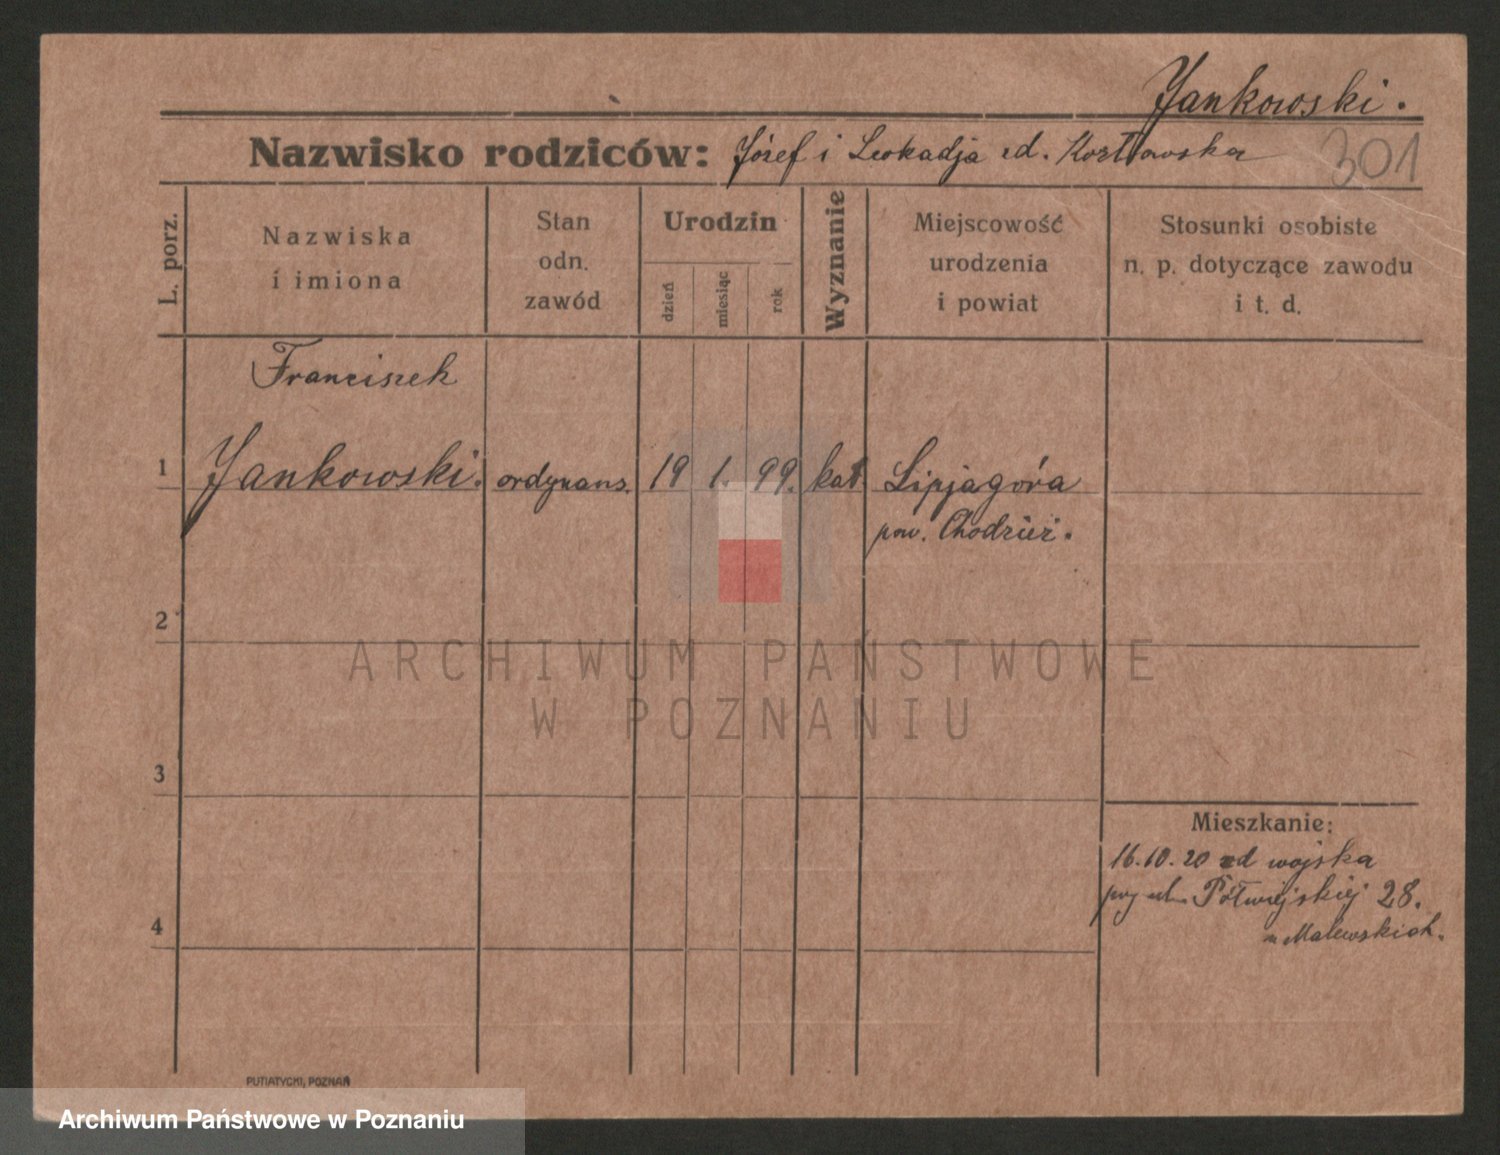 Jankowski.
Nazwisko rodziców: Józef i Leokadja Kozłowska
301
L. porz.
Nazwiska
i imiona
Stan
odn.
zawód
Urodzin
dzień
miesiąc
rok
Wyznanie
Miejscowość
urodzenia
i powiat
Stosunki osobiste
n. p. dotyczące zawodu
i t. d.
Franciszek
1 Jankowski. ordynans. 19 1. 99. kat. Lipjagóra
pow. Chodzież.
2
ARCHIWUM PAŃSTWOWE
W POZNANIU
3
Mieszkanie:
16.10.20 od wojska
przy ul. Półwiejskiej 28.
Malewskich.
4
PUTIATYCKI, POZNAŃ
Archiwum Państwowe w Poznaniu